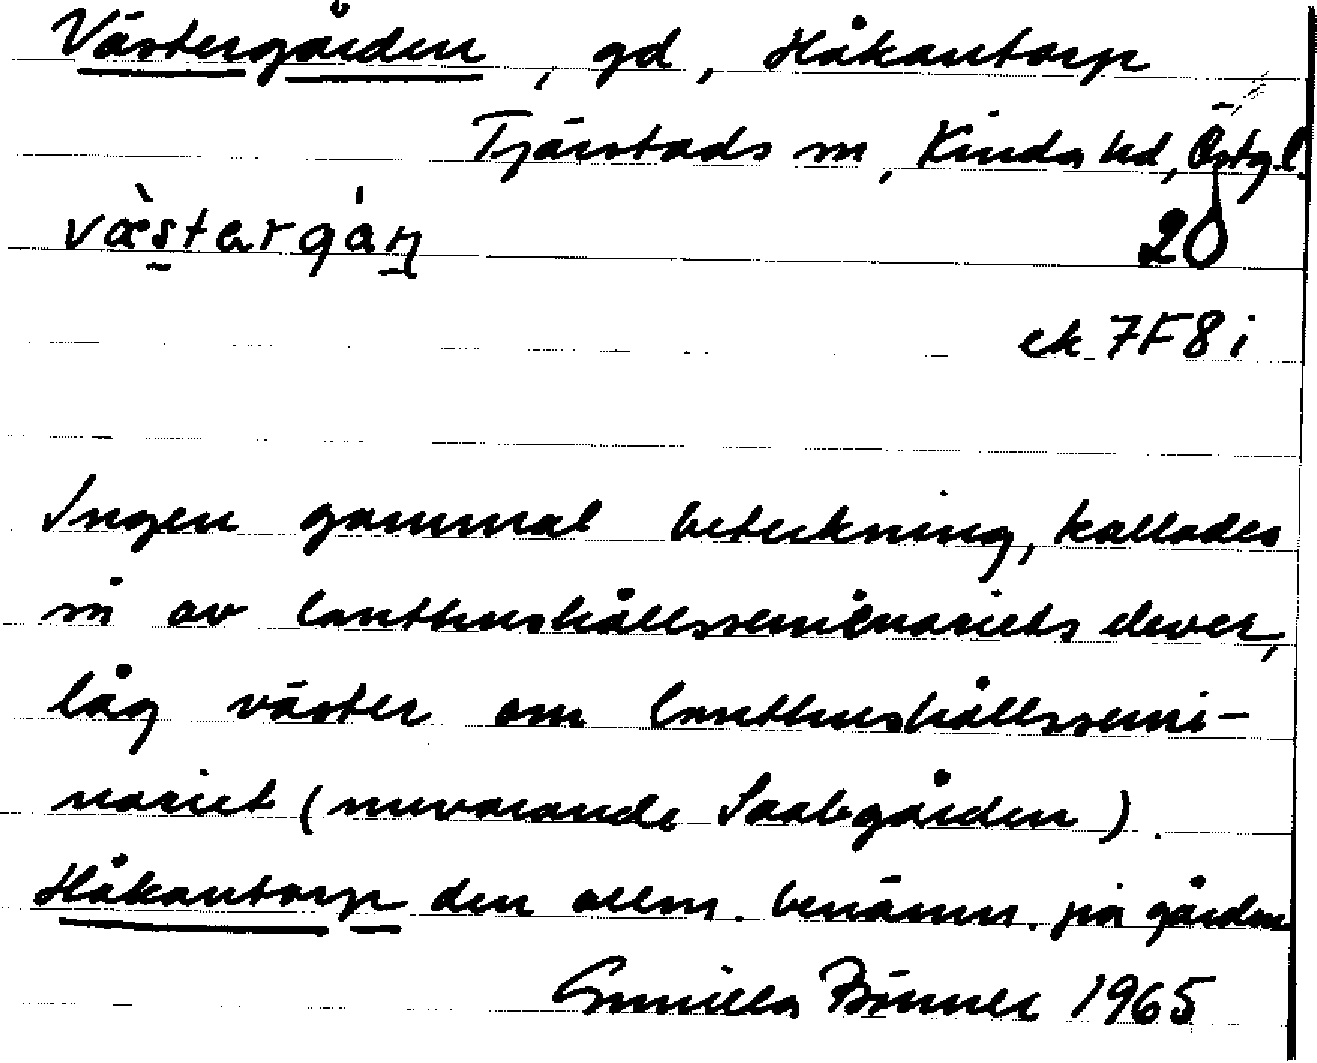 Västergården, gd, Håkantorp
Tjärstads sn, Kinda hd, Östg.l.
væ̀stargán
20
ek 7F8i
Ingen gammal beteckning, kallades
så av lanthushållsseminariets elever,
låg väster om lanthushållssemi-
nariet (nuvarande Saabgården).
Håkantorp den allm. benämn. på gården
Gunilla 1965